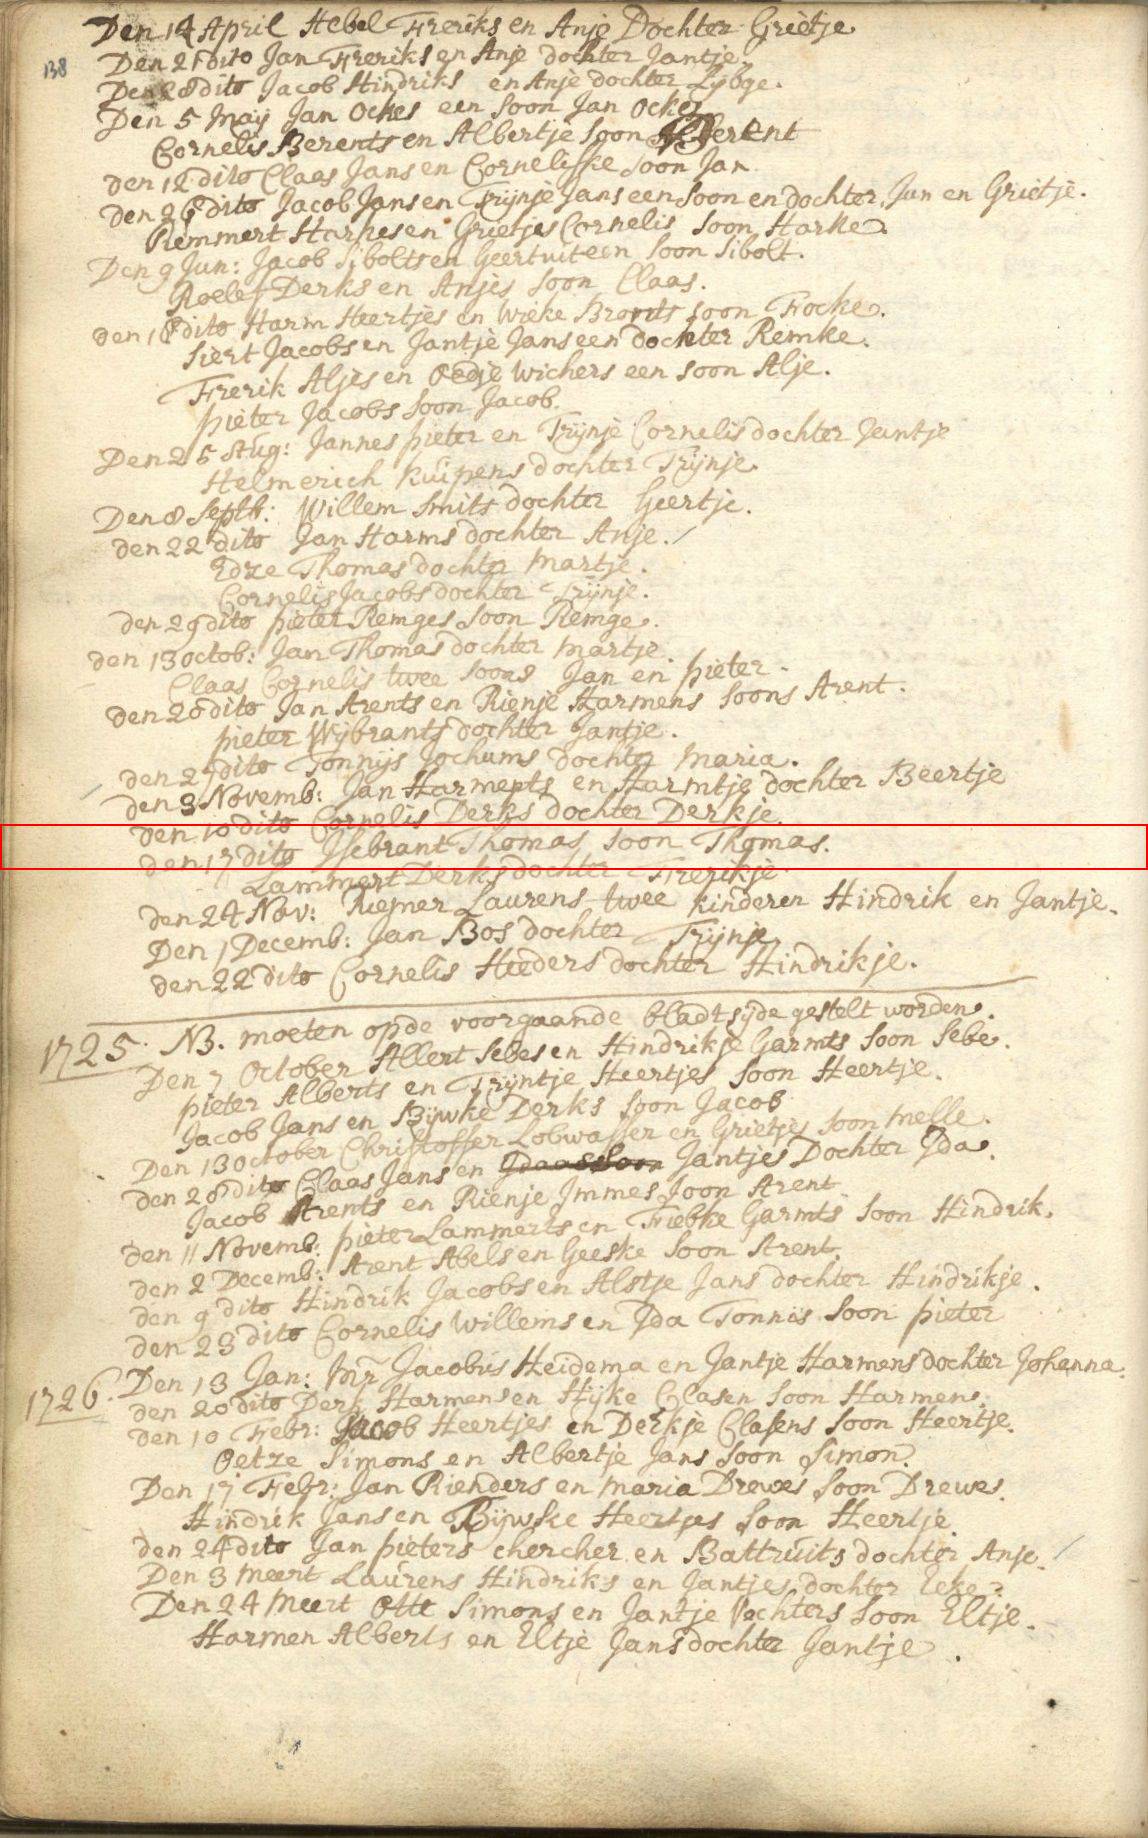 138
Den 14 April Hebel Freriks en Anje Dochter Grietje
Den 21 dito Jan Freriks en Anje dochter Jantje.
Den 28 dito Jacob Hindriks en Anje dochter Lybge.
Den 5 Maij Jan Ockes een soon Jan Ockes
Cornelis Berents en Albertje soon Berent
den 12 dito Claas Jans en Corneliske soon Jan
den 26 dito Jacob Jans en Trijnje Jans een soon en dochter, Jan en Grietje.
Remmert Harkes en Grietjes Cornelis soon Harke.
Den 9 Jun: Jacob Sibolts en Geertuit een soon Sibolt.
Roelef Derks en Anjes soon Claas.
den 16 dito Harm Heertjes en Wieke Bronts soon Focke.
Siert Jacobs en Jantje Jans een dochter Remke.
Frerik Aljes en Oedje Wichers een soon Alje.
pieter Jacobs soon Jacob.
Den 25 Aug: Jannes pieter en Trijnje Cornelis dochter Jantje
Helmerich Kuipens dochter Trijnje.
Den 8 Septb: Willem Smits dochter Geertje.
den 22 dito Jan Harms dochter Anje.
Edze Thomas dochter Martje.
Cornelis Jacobs dochter Trijnje.
den 29 dito pieter Remges soon Remge.
den 13 octob: Jan Thomas dochter Martje.
Claas Cornelis twee soons Jan en pieter.
den 20 dito Jan Arents en Rienje Harmens soons Arent.
pieter Wijbrants dochter Jantje.
den 27 dito Tonnijs Jochums dochter Maria.
den 3 Novemb: Jan Harments en Harmtje dochter Beertje
den 10 dito Cornelis Derks dochter Derkje.
den 17 dito Isebrant Thomas soon Thomas.
Lammert Derks dochter Frerikje.
den 24 Nov: Riejner Laurens twee kinderen Hindrik en Jantje.
Den 1 Decemb: Jan Bos dochter Trijnje.
den 22 dito Cornelis Heeders dochter Hindrikje.
1725. NB. moeten op de voorgaande bladtsijde gestelt worden.
Den 7 October Allert Sebes en Hindrikje Garmts soon Sebe.
pieter Alberts en Trijntje Heertjes soon Heertje.
Jacob Jans en Bijwke Derks soon Jacob
Den 13 october Christoffer Lobwasser en Grietjes soon Melle.
den 28 dito Claas Jans en Jantjes Dochter Ida.
Jacob Arents en Rienje Immes soon Arent
den 11 Novemb: pieter Lammerts en Fiebke Garmts soon Hindrik.
den 2 Decemb: Arent Abels en Geeske soon Arent.
den 9 dito Hindrik Jacobs en Alstje Jans dochter Hindrikje.
den 23 dito Cornelis Willems en Ida Tonnis soon pieter
1726. Den 13 Jan: Mr Jacobus Heidema en Jantje Harmens dochter Johanna.
den 20 dito Derk Harmens en Hijke Clasen soon Harmen.
den 10 Febr: Jacob Heertjes en Derkje Clasens soon Heertje.
Oetze Simons en Albertje Jans soon Simon.
Den 17 Febr: Jan Rienders en Maria Drewes soon Drewes.
Hindrik Jans en Bijwske Heertjes soon Heertje.
den 24 dito Jan pieters chercher en Battruits dochter Anje.
Den 3 Meert Laurens Hindriks en Jantjes dochter Eeke.
Den 24 Meert Otte Simons en Jantje Vechters soon Eltje.
Harmen Alberts en Eltje Jans dochter Jantje.